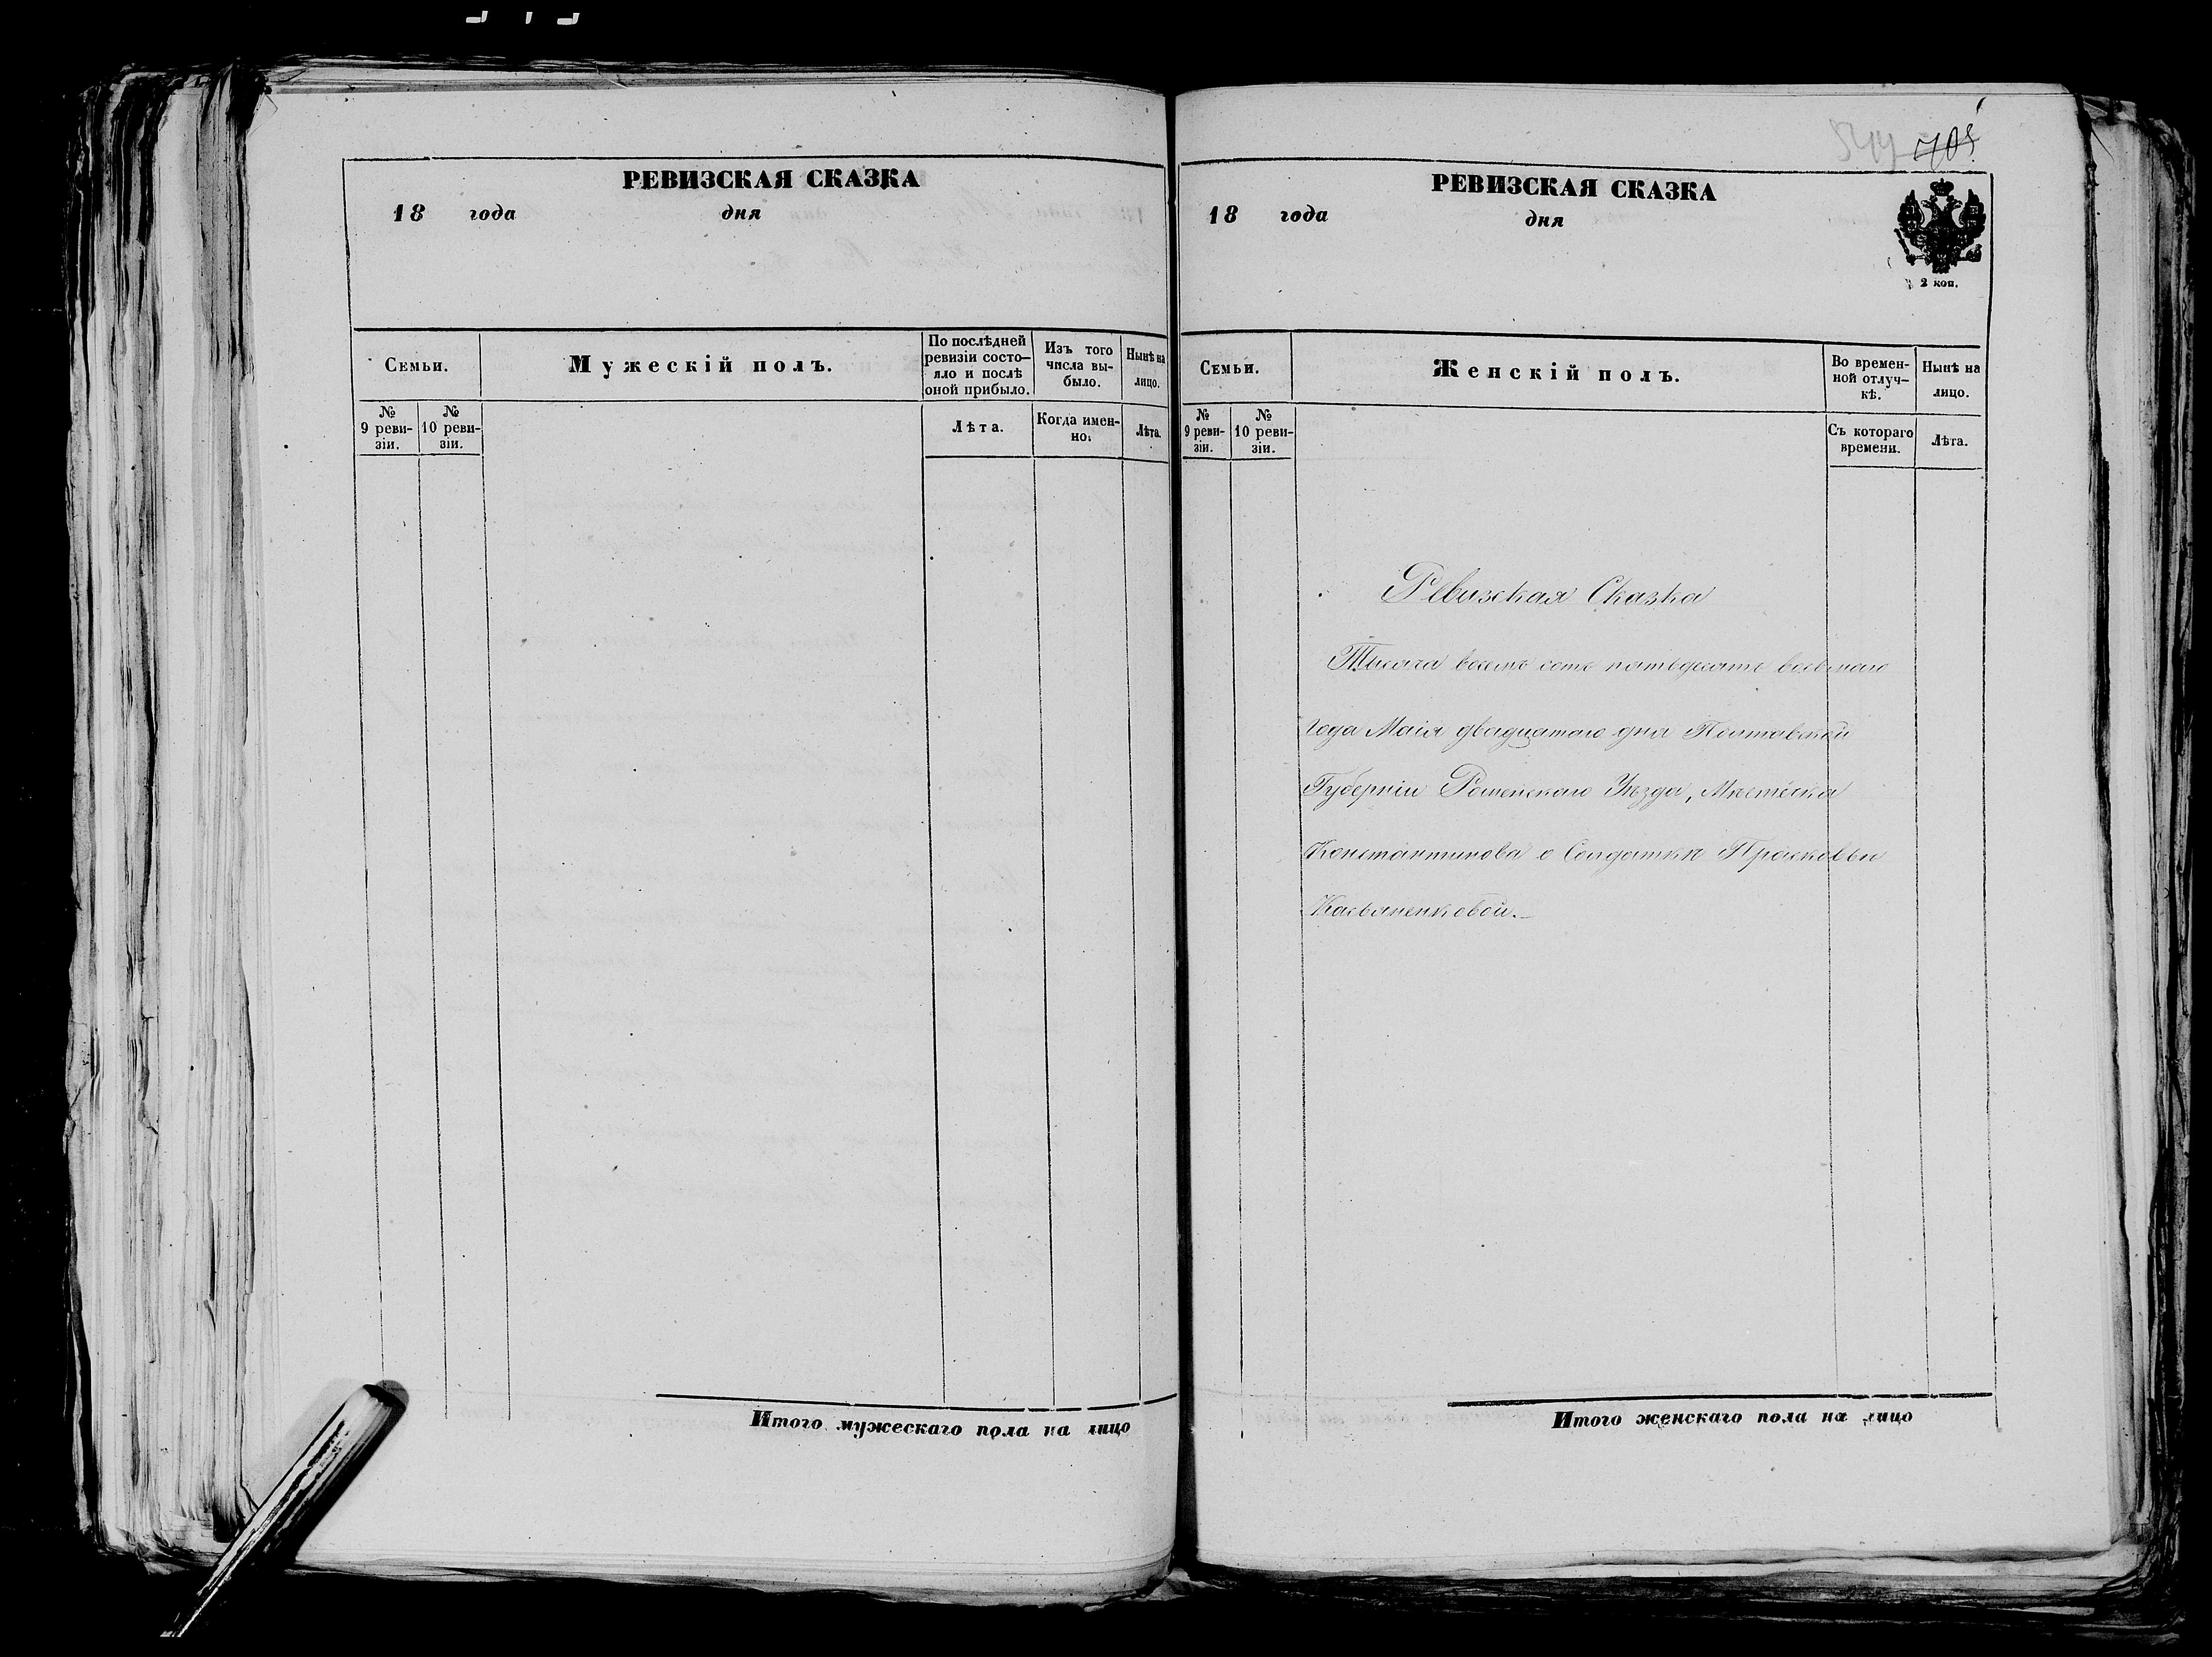 РЕВИЗСКАЯ СКАЗКА
18 года дня
Семьи.
Мужескій полъ.
По послѣдней
ревизіи состо-
яло и послѣ
оной прибыло.
Изъ того
числа вы-
было.
Нынѣ на
лицо.
№
9 реви-
зіи.
№
10 реви-
зіи.
Лѣта.
Когда имен-
но.
Лѣта.
Итого мужескаго пола на лицо
705
РЕВИЗСКАЯ СКАЗКА
18 года дня
2 коп.
Семьи.
Женскій полъ.
Во времен-
ной отлуч-
кѣ.
Нынѣ на
лицо.
№
9 реви-
зіи.
№
10 реви-
зіи.
Съ котораго
времени.
Лѣта.
Ревизская Сказка
Тысяча восемь сотъ пятьдесятъ восьмаго
года Маія двадцатаго дня Полтавской
Губерніи Роменскаго Уѣзда, Мѣстечка
Константинова о Солдаткѣ Прасковьи
Касьяненковой.
Итого женскаго пола на лицо